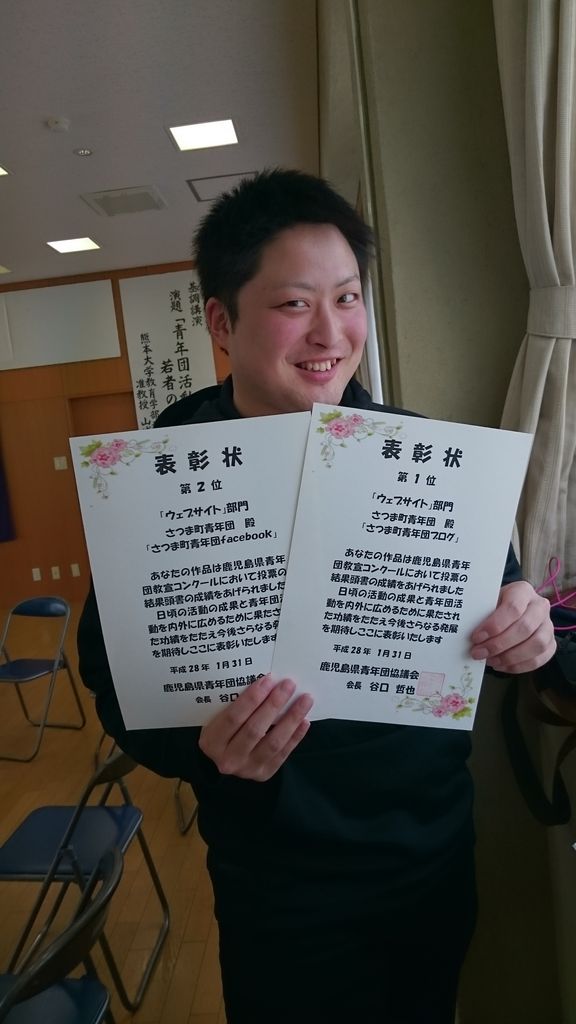 基調講演
演題「青年団活動
若者の
熊本大学教育学部
准教授 山
表彰状
第2位
「ウェブサイト」部門
さつま町青年団 殿
「さつま町青年団facebook」
あなたの作品は鹿児島県青年
団教宣コンクールにおいて投票の
結果頭書の成績をあげられました
日頃の活動の成果と青年団活
動を内外に広めるために果たさ
た功績をたたえ今後さらなる発
を期待しここに表彰いたします
平成28年 1月31日
鹿児島県青年団協議会
会長 谷口
表彰状
第1位
「ウェブサイト」部門
さつま町青年団 殿
「さつま町青年団ブログ」
あなたの作品は鹿児島県青年
団教宣コンクールにおいて投票の
結果頭書の成績をあげられました
日頃の活動の成果と青年団活
動を内外に広めるために果たされ
た功績をたたえ今後さらなる発展
を期待しここに表彰いたします
平成28年 1月31日
鹿児島県青年団協議会
会長 谷口 哲也